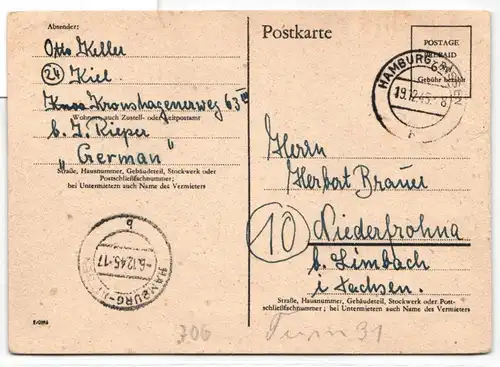 Absender:
Otto Keller
24 Kiel
Kronshagenerweg 63
Wohnort, auch Zustell- oder Leitpostamt
b. J. Rieper
„German"
Straße, Hausnummer, Gebäudeteil, Stockwerk oder
Postschließfachnummer;
bei Untermietern auch Name des Vermieters
b
-6.12.45.-17
HAMBURG-
Postkarte
POSTAGE
PREPAID
Gebühr bezahlt
HAMBURG
19.12.45.
Herrn
Herbert Brauer
10 Niederfrohna
b. Limbach
i Sachsen.
Straße, Hausnummer, Gebäudeteil, Stockwerk oder Post-
schließfachnummer; bei Untermietern auch Name des Vermieters
306